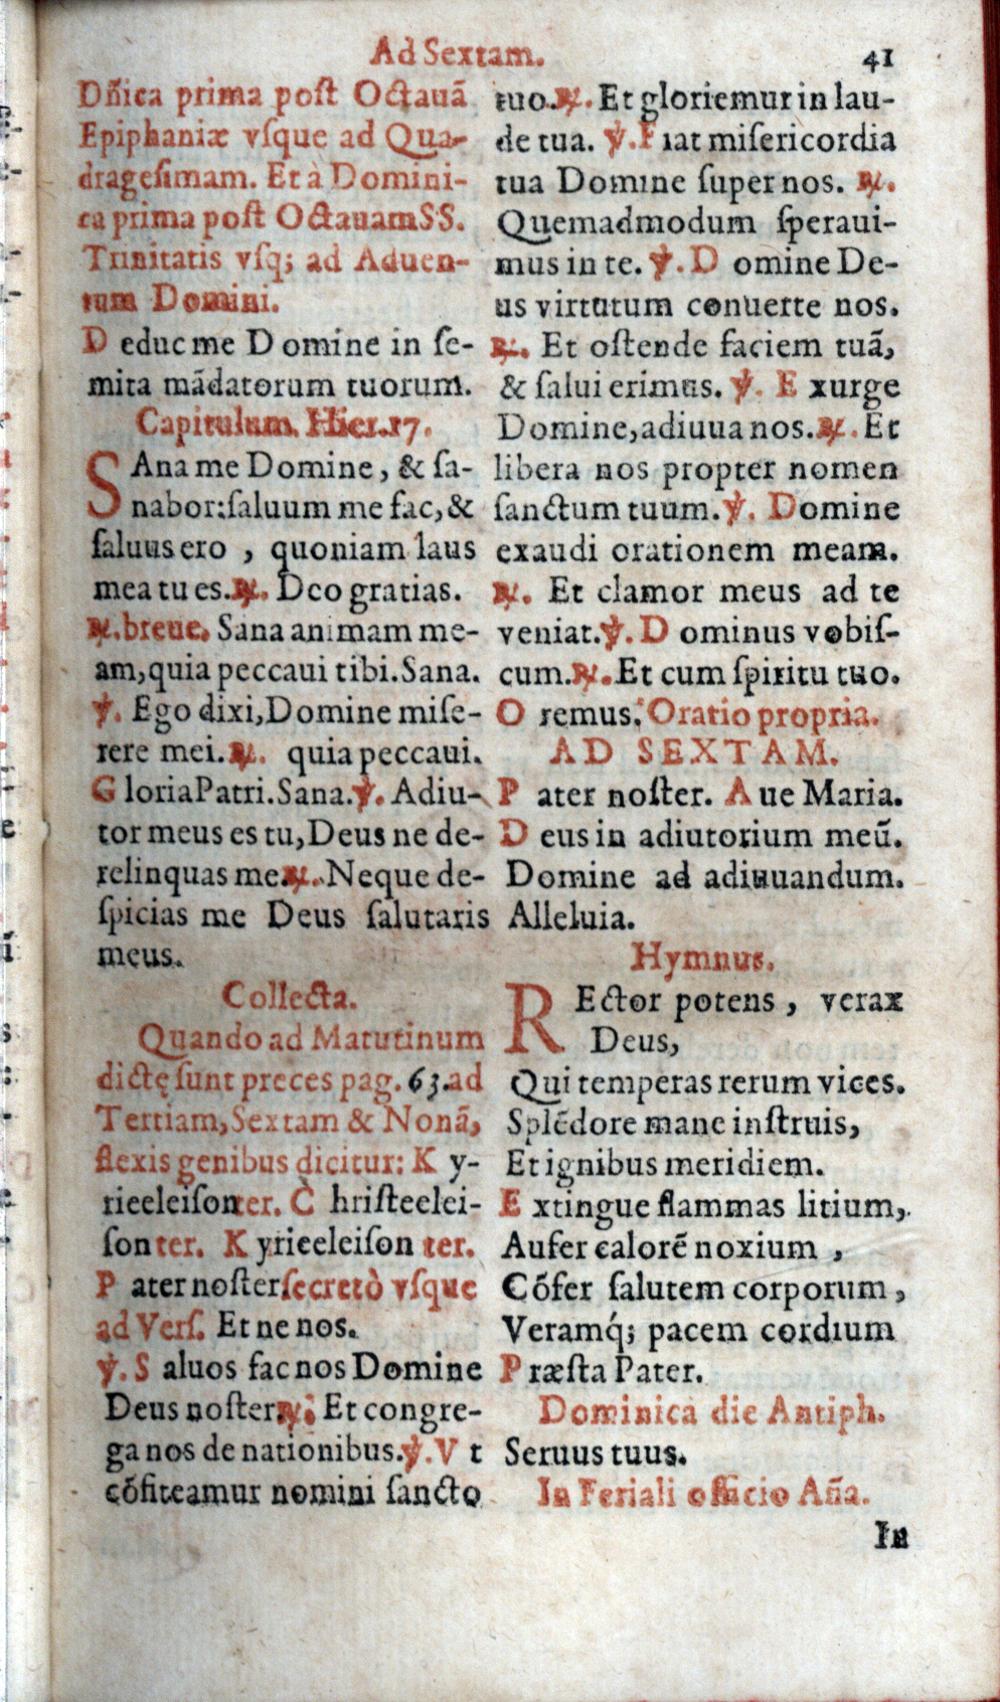 Ad Sextam.
41
Dñica prima poſt Octauã
Epiphaniæ vſque ad Qua-
drageſimam. Et à Domini-
ca prima poſt Octauam SS.
Trinitatis vſq; ad Aduen-
tum Domini.
D educ me D omine in ſe-
mita mãdatorum tuorum.
Capitulum. Hier. 17.
SAna me Domine, & ſa-
nabor: ſaluum me fac, &
ſaluus ero , quoniam laus
mea tu es. ℟. Deo gratias.
℟. breue. Sana animam me-
am, quia peccaui tibi. Sana.
℣. Ego dixi, Domine miſe-
rere mei. ℟. quia peccaui.
G loria Patri. Sana. ℣. Adiu-
tor meus es tu, Deus ne de-
relinquas me. ℟. Neque de-
ſpicias me Deus ſalutaris
meus.
Collecta.
Quando ad Matutinum
dictę ſunt preces pag. 63. ad
Tertiam, Sextam & Nonã,
flexis genibus dicitur: K y-
rieeleiſon ter. C hriſteelei-
ſon ter. K yrieeleiſon ter.
P ater noſter ſecretò vſque
ad Verſ. Et ne nos.
℣. S aluos fac nos Domine
Deus noſter. ℟. Et congre-
ga nos de nationibus. ℣. V t
cõfiteamur nomini ſancto
tuo. ℟. Et gloriemur in lau-
de tua. ℣. F iat miſericordia
tua Domine ſuper nos. ℟.
Quemadmodum ſperaui-
mus in te. ℣. D omine De-
us virtutum conuerte nos.
℟. Et oſtende faciem tuã,
& ſalui erimus. ℣. E xurge
Domine, adiuua nos. ℟. Et
libera nos propter nomen
ſanctum tuum. ℣. Domine
exaudi orationem meam.
℟. Et clamor meus ad te
veniat. ℣. D ominus vobiſ-
cum. ℟. Et cum ſpiritu tuo.
O remus. Oratio propria.
AD SEXTAM.
P ater noſter. A ue Maria.
D eus in adiutorium meũ.
Domine ad adiuuandum.
Alleluia.
Hymnus.
REctor potens , verax
Deus,
Qui temperas rerum vices.
Splẽdore mane inſtruis,
Et ignibus meridiem.
E xtingue flammas litium,
Aufer calorẽ noxium ,
Cõfer ſalutem corporum ,
Veramq́; pacem cordium
P ræſta Pater.
Dominica die Antiph.
Seruus tuus.
In Feriali officio Aña.
In